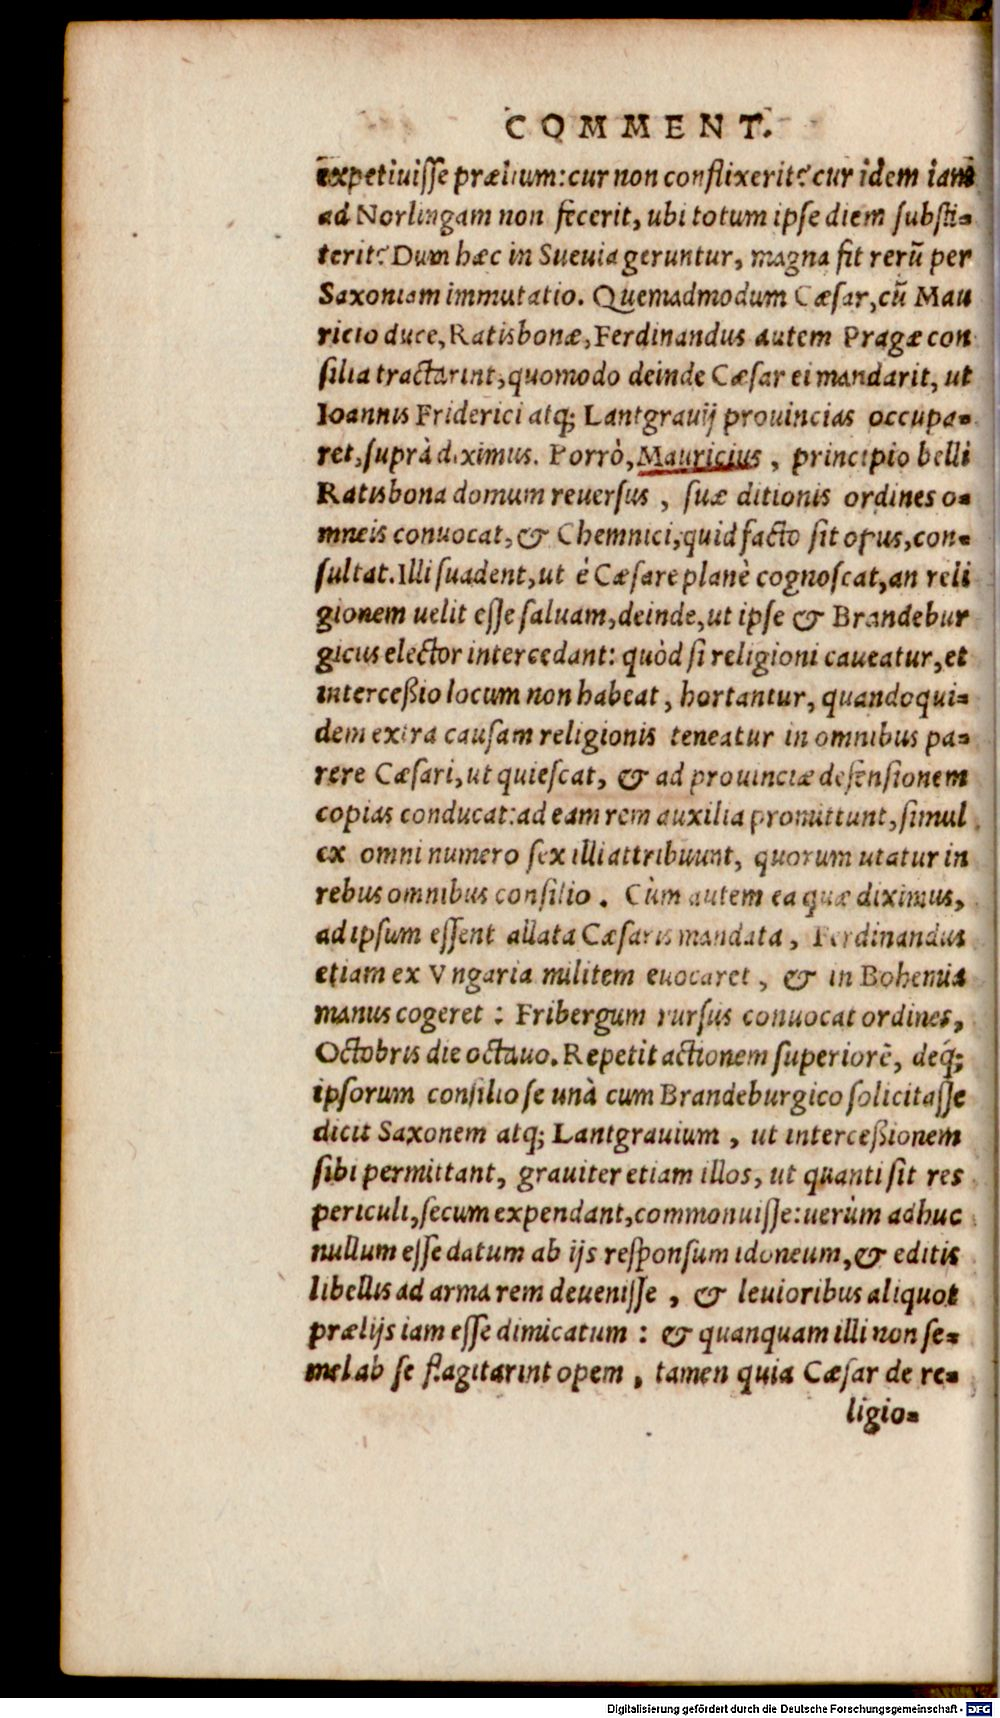 COMMENT.
expetiuisse prælium: cur non conflixerit? cur idem iam
ad Norlingam non fecerit, ubi totum ipse diem substi-
terit? Dum hæc in Sueuia geruntur, magna fit rerũ per
Saxoniam immutatio. Quemadmodum Cæsar, cũ Mau
ricio duce, Ratisbonæ, Ferdinandus autem Pragæ con
silia tractarint, quomodo deinde Cæsar ei mandarit, ut
Ioannis Friderici atq; Lantgrauij prouincias occupa-
ret, suprà diximus. Porrò, Mauricius, principio belli
Ratisbona domum reuersus, suæ ditionis ordines o-
mneis conuocat, & Chemnici, quid facto sit opus, con-
sultat. Illi suadent, ut é Cæsare planè cognoscat, an reli
gionem uelit esse saluam, deinde, ut ipse & Brandebur
gicus elector intercedant: quòd si religioni caueatur, et
interceßio locum non habeat, hortantur, quandoqui-
dem extra causam religionis teneatur in omnibus pa-
rere Cæsari, ut quiescat, & ad prouinciæ defensionem
copias conducat: ad eam rem auxilia promittunt, simul
ex omni numero sex illi attribuunt, quorum utatur in
rebus omnibus consilio. Cùm autem ea quæ diximus,
ad ipsum essent allata Cæsaris mandata, Ferdinandus
etiam ex Vngaria militem euocaret, & in Bohemia
manus cogeret: Fribergum rursus conuocat ordines,
Octobris die octauo. Repetit actionem superiorē, deq́;
ipsorum consilio se unà cum Brandeburgico solicitasse
dicit Saxonem atq; Lantgrauium, ut interceßionem
sibi permittant, grauiter etiam illos, ut quanti sit res
periculi, secum expendant, commonuisse: uerùm adhuc
nullum esse datum ab ijs responsum idoneum, & editis
libellis ad arma rem deuenisse, & leuioribus aliquot
prælijs iam esse dimicatum: & quanquam illi non se-
mel ab se flagitarint opem, tamen quia Cæsar de re-
ligio-
Digitalisierung gefördert durch die Deutsche Forschungsgemeinschaft - DFG